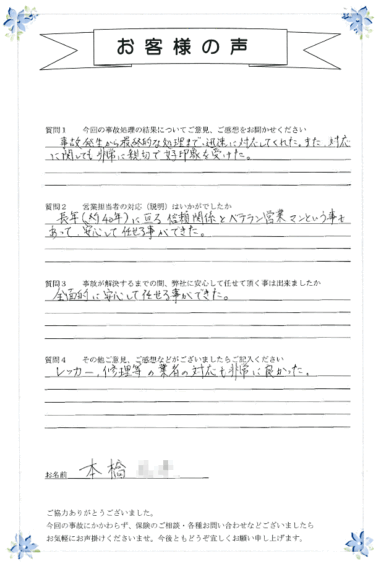 お客様の声
質問1 今回の事故処理の結果についてご意見、ご感想をお聞かせください
事故発生から最終的な処理まで、迅速に対応してくれた。また、対応
に関しても非常に親切で好印象を受けた。
質問2 営業担当者の対応（説明）はいかがでしたか
長年(約40年)に亘る信頼関係とベテラン営業マンという事も
あって、安心して任せる事ができた。
質問3 事故が解決するまでの間、弊社に安心して任せて頂く事は出来ましたか
全面的に安心して任せる事ができた。
質問4 その他ご意見、ご感想などがございましたらご記入ください
レッカー、修理等の業者の対応も非常に良かった。
お名前 本橋
ご協力ありがとうございました。
今回の事故にかかわらず、保険のご相談・各種お問い合わせなどございましたら
お気軽にお声掛けくださいませ。今後ともどうぞ宜しくお願い申し上げます。